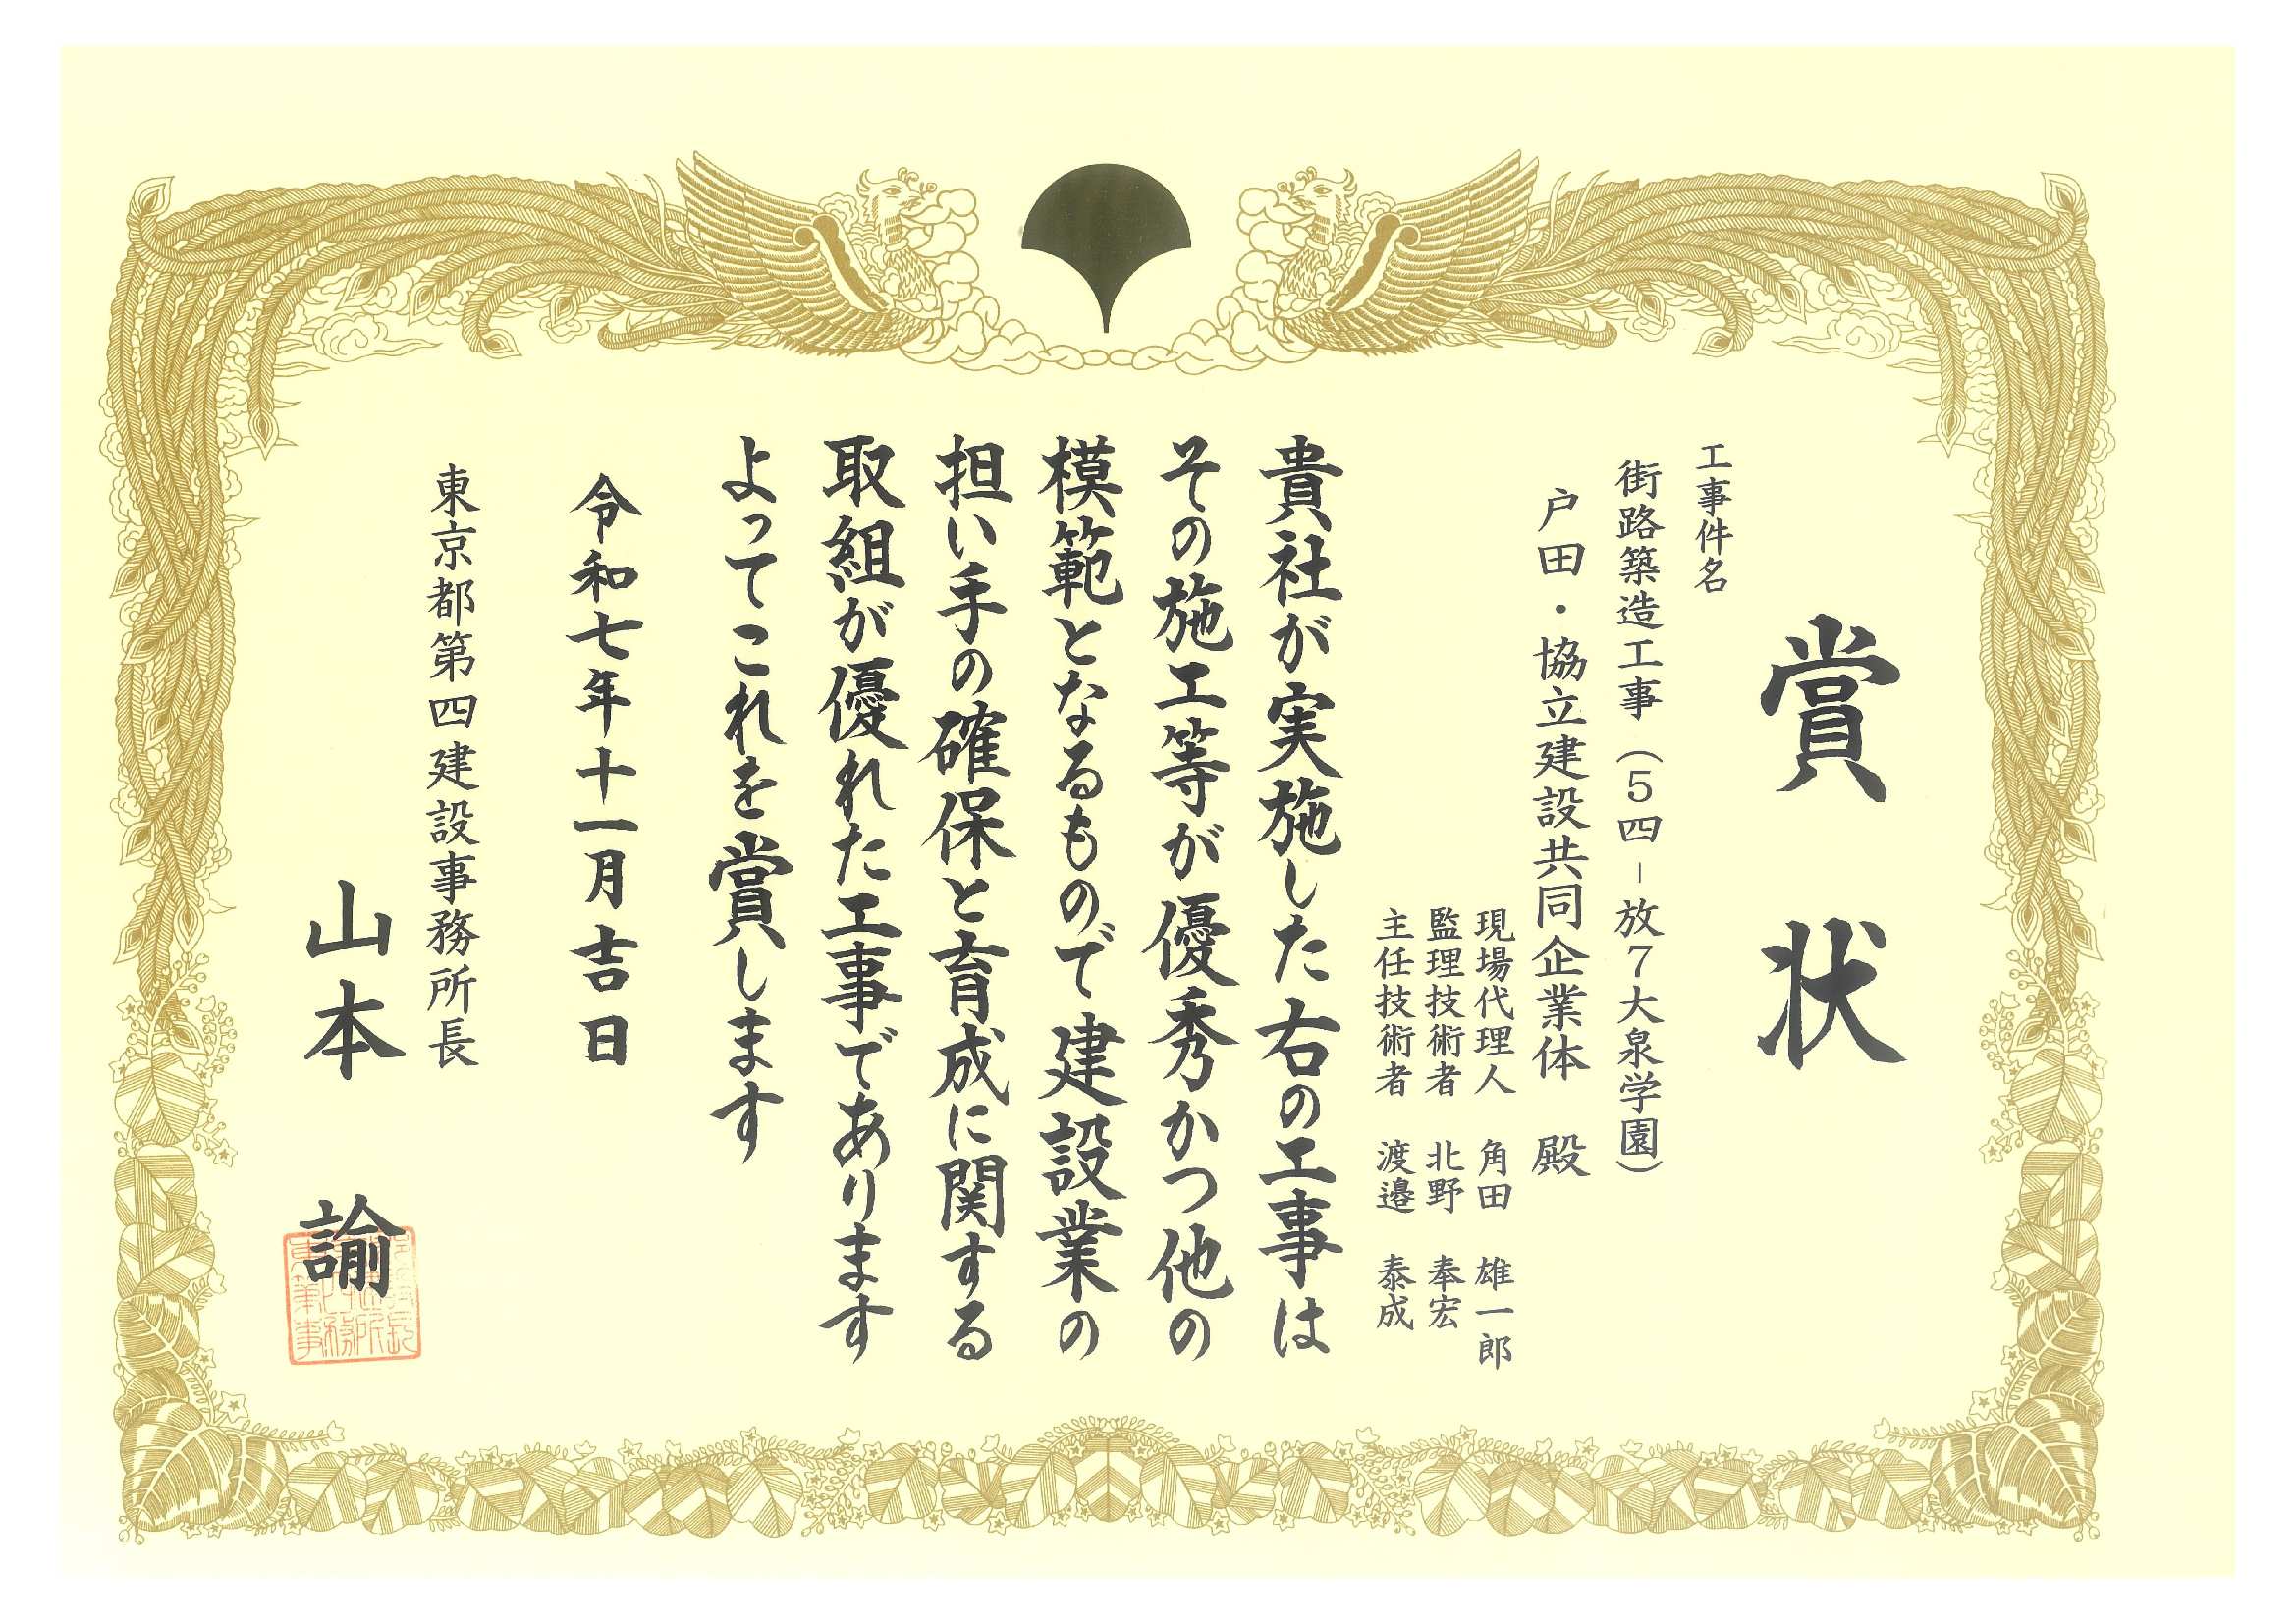 賞状
工事件名
街路築造工事（５四－放７大泉学園）
戸田・協立建設共同企業体　殿
現場代理人　角田　雄一郎
監理技術者　北野　奉宏
主任技術者　渡邉　泰成
貴社が実施した右の工事は
その施工等が優秀かつ他の
模範となるもので建設業の
担い手の確保と育成に関する
取組が優れた工事であります
よってこれを賞します
令和七年十一月吉日
東京都第四建設事務所長
山本　諭